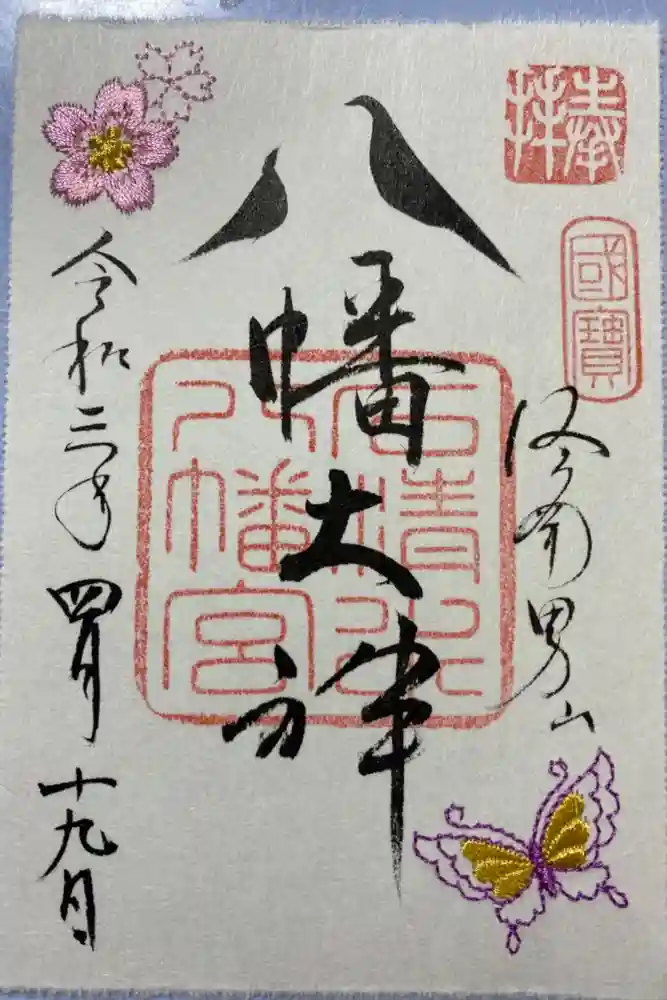 奉拝
國寶
男山
八幡大神
石清水
八幡宮
令和三年四月十九日